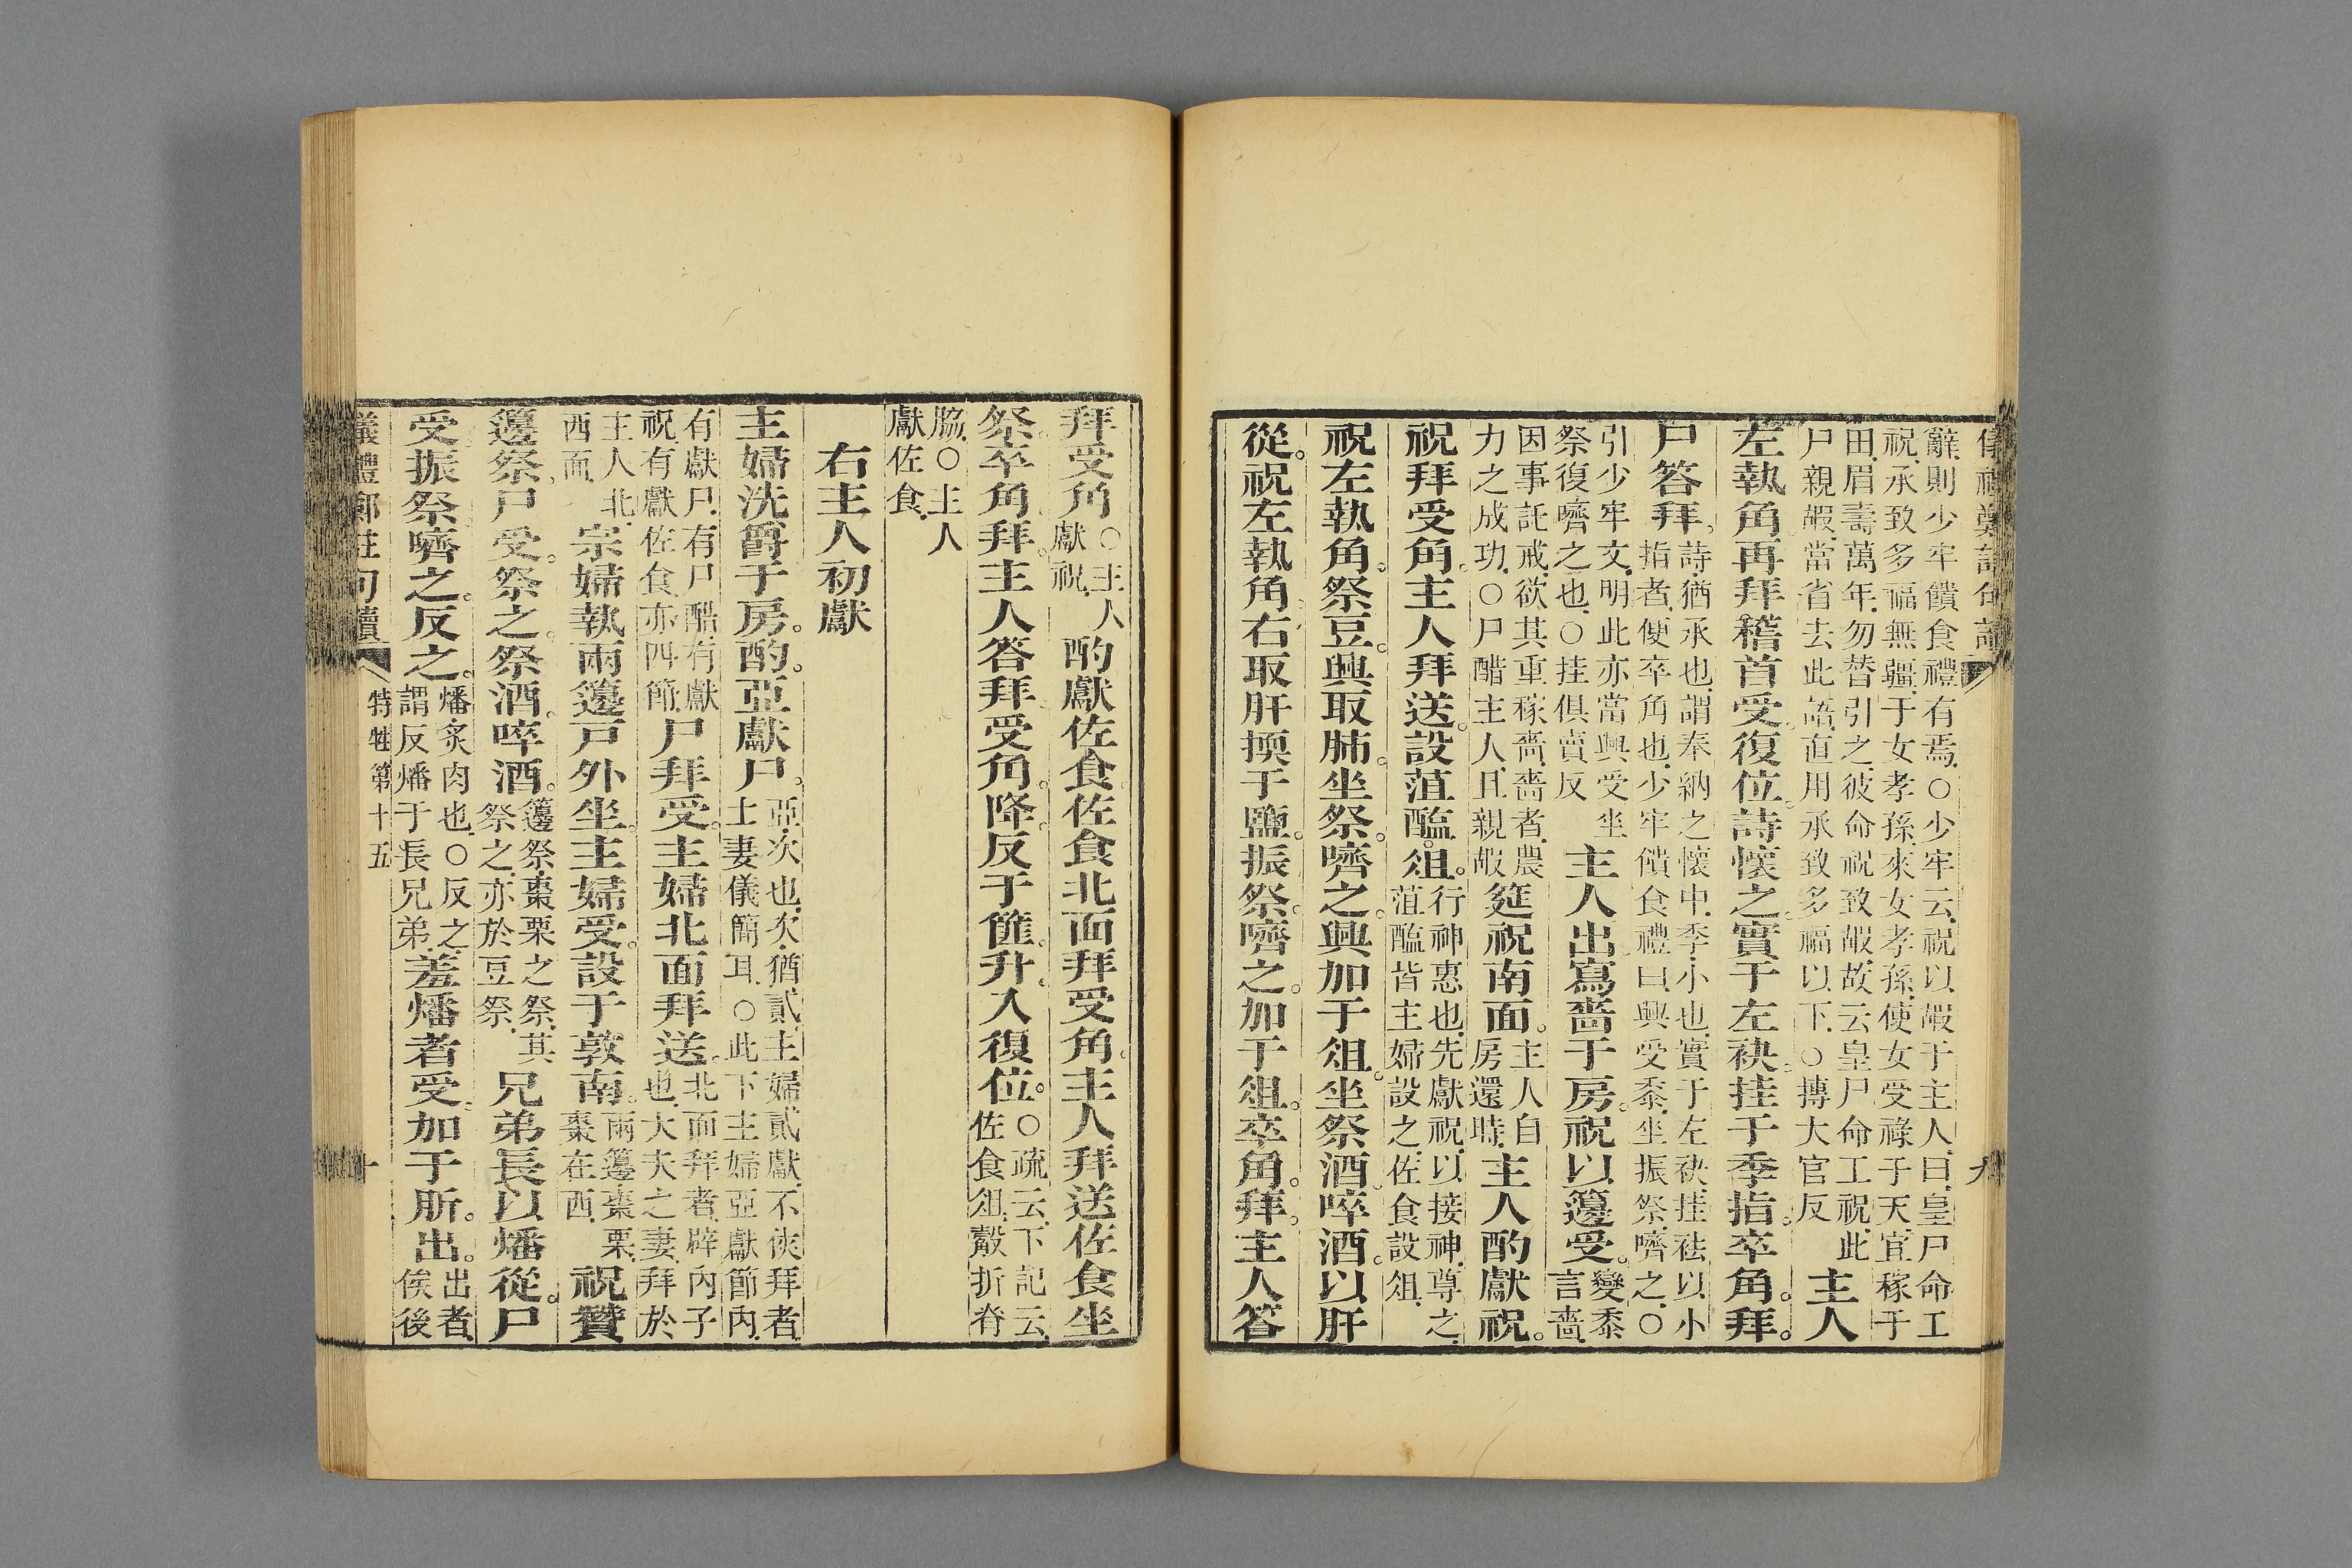 儀禮鄭註句讀　九
辭.則少牢饋食禮有焉.○少牢云.祝以嘏于主人.曰.皇尸命工
祝.承致多福無疆.于女孝孫.來女孝孫.使女受祿于天.宜稼于
田.眉壽萬年.勿替引之.彼命祝致嘏.故云皇尸命工祝.此
尸親嘏.當省去此語.直用承致多福以下.○摶大官反
主人
左執角再拜稽首受。復位。詩懷之。實于左袂。挂于季指。卒角。拜。
尸答拜。
詩.猶承也.謂奉納之懷中.季.小也.實于左袂.挂袪以小
指者.便卒角也.少牢饋食禮曰.興受黍.坐振祭.嚌之.○
引少牢文.明此亦當興受坐
祭復嚌之也.○挂俱賣反
主人出寫嗇于房。祝以籩受。
變黍
言嗇.
因事託戒.欲其重稼嗇.嗇者.農
力之成功.○尸醋主人.且親嘏
筵祝南面。
主人自
房還時.
主人酌獻祝。
祝拜受角。主人拜送。設菹醢。俎。
行神惠也.先獻祝.以接神.尊之.
菹醢皆主婦設之.佐食設俎.
祝左執角。祭豆。興取肺。坐祭。嚌之。興加于俎。坐祭酒。啐酒。以肝
從。祝左執角。右取肝擩于鹽。振祭。嚌之。加于俎。卒角。拜。主人答
拜受角
○主人
獻祝.
酌獻佐食佐食北面拜受角。主人拜送佐食坐
祭。卒角拜。主人答拜。受角。降。反于篚。升。入復位。
○疏云.下記云.
佐食俎.觳折脊
脇.○主人
獻佐食.
右主人初獻
主婦洗爵于房。酌。亞獻尸。
亞.次也.次.猶貳.主婦貳獻.不俠拜者.
士妻儀簡耳.○此下主婦亞獻節內.
有獻尸.有尸酢.有獻
祝.有獻佐食.亦四節.
尸拜受。主婦北面拜送。
北面拜者.辟內子
也.大夫之妻.拜於
主人北.
西面.
宗婦執兩籩戶外坐。主婦受。設于敦南。
兩籩棗栗.
棗在西.
祝贊
籩祭。尸受。祭之。祭酒。啐酒。
籩祭.棗栗之祭.其
祭之.亦於豆祭.
兄弟長以燔從。尸
受振祭嚌之。反之。
燔炙肉也.○反之.
謂反燔于長兄弟.
羞燔者受。加于肵。出。
出者.
俟後
儀禮鄭註句讀　特牲第十五　十